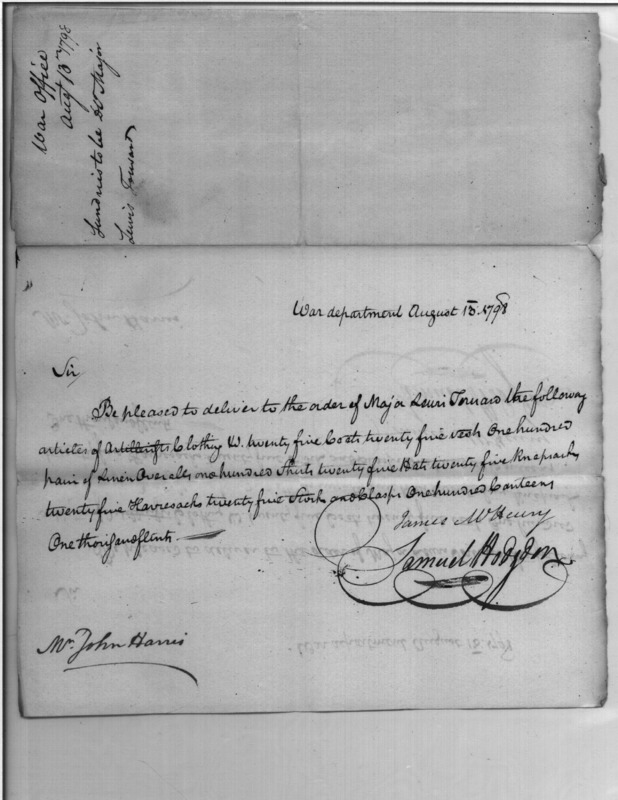 War Office
Augt 13th 1798
Sundries to be Dd Major
Lewis Tousard
War department August 13. 1798
Sir
Be pleased to deliver to the order of Major Lewis Tousard the following
articles of Clothing Vt. twenty five Coats twenty five vests One hundred
pair of Linen Overalls one hundred Shirts twenty five Hats twenty five Knapsacks
twenty five Haversacks twenty five Stocks and Clasps One hundred Canteens
One thousand flints.
James McHenry
Samuel Hodgdon
Mr. John Harris